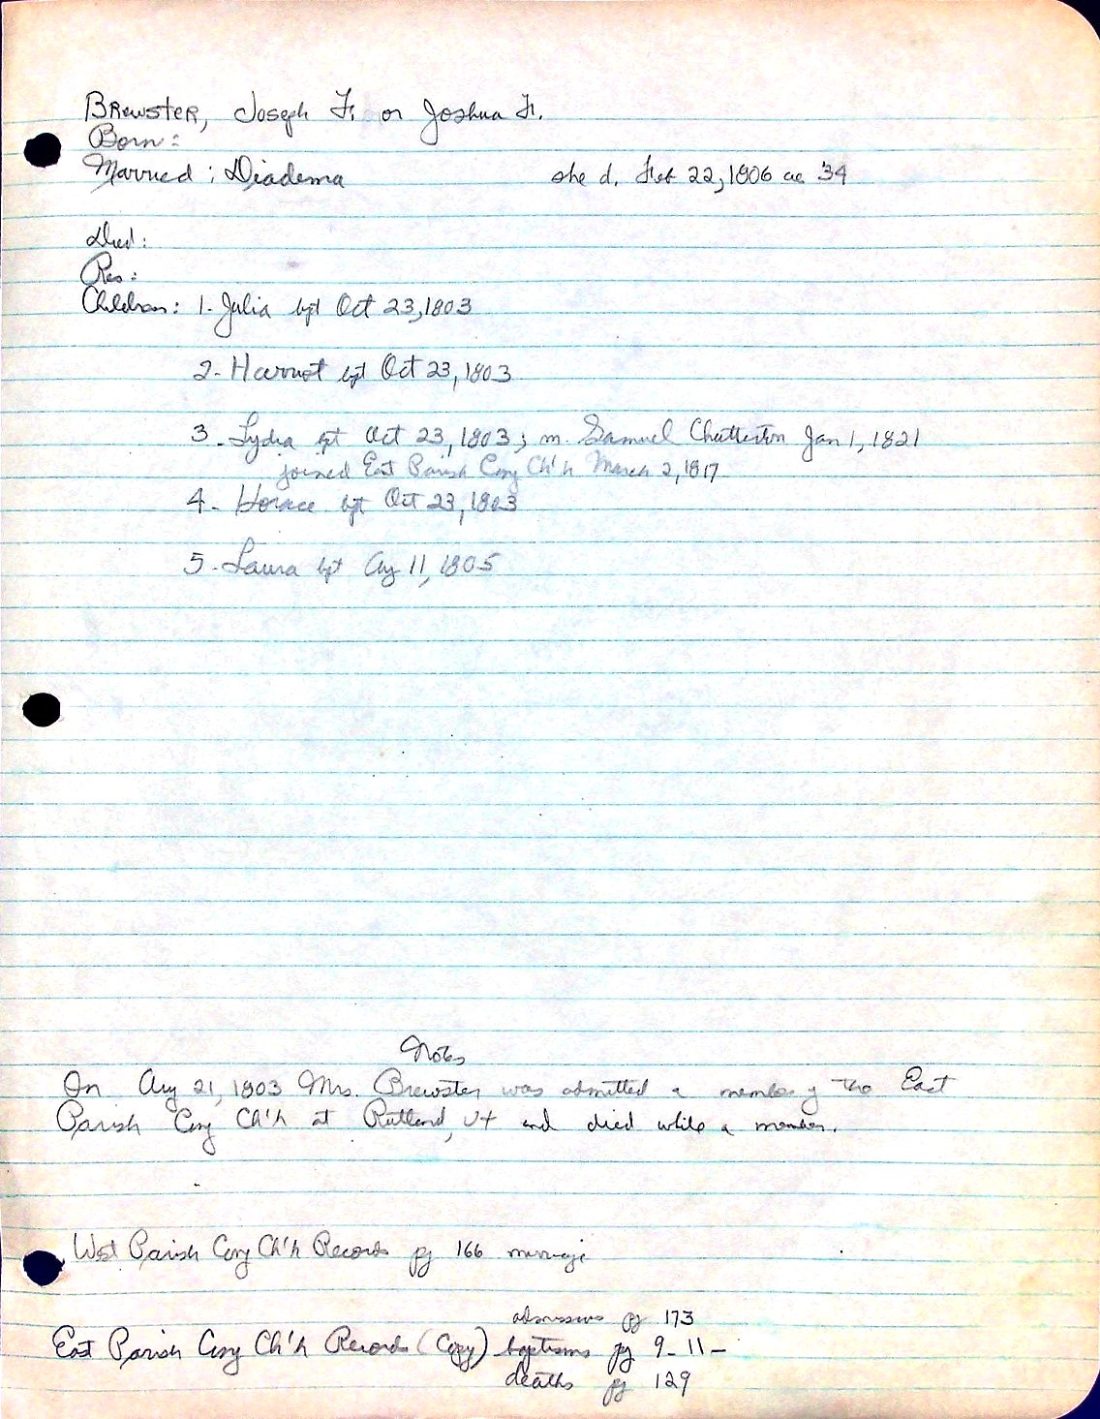 Brewster, Joseph Jr. or Joshua Jr.
Born:
Married: Diadema she d. Feb 22, 1806 ae 34
Died:
Res:
Children: 1. Julia bpt Oct 23, 1803
2- Harriot bpt Oct 23, 1803
3- Lydia bpt Oct 23, 1803; m. Samuel Chatterton Jan 1, 1821
joined East Parish Cong Ch'h March 2, 1817
4- Horace bpt Oct 23, 1803
5- Laura bpt Aug 11, 1805
Notes
On Aug 21, 1803 Mrs. Brewster was admitted a member of the East
Parish Cong Ch'h at Rutland, Vt and died while a member.
West Parish Cong Ch'h Records pg 166 marriage
admissions pg 173
East Parish Cong Ch'h Records (Copy) baptisms pg 9-11-
deaths pg 129